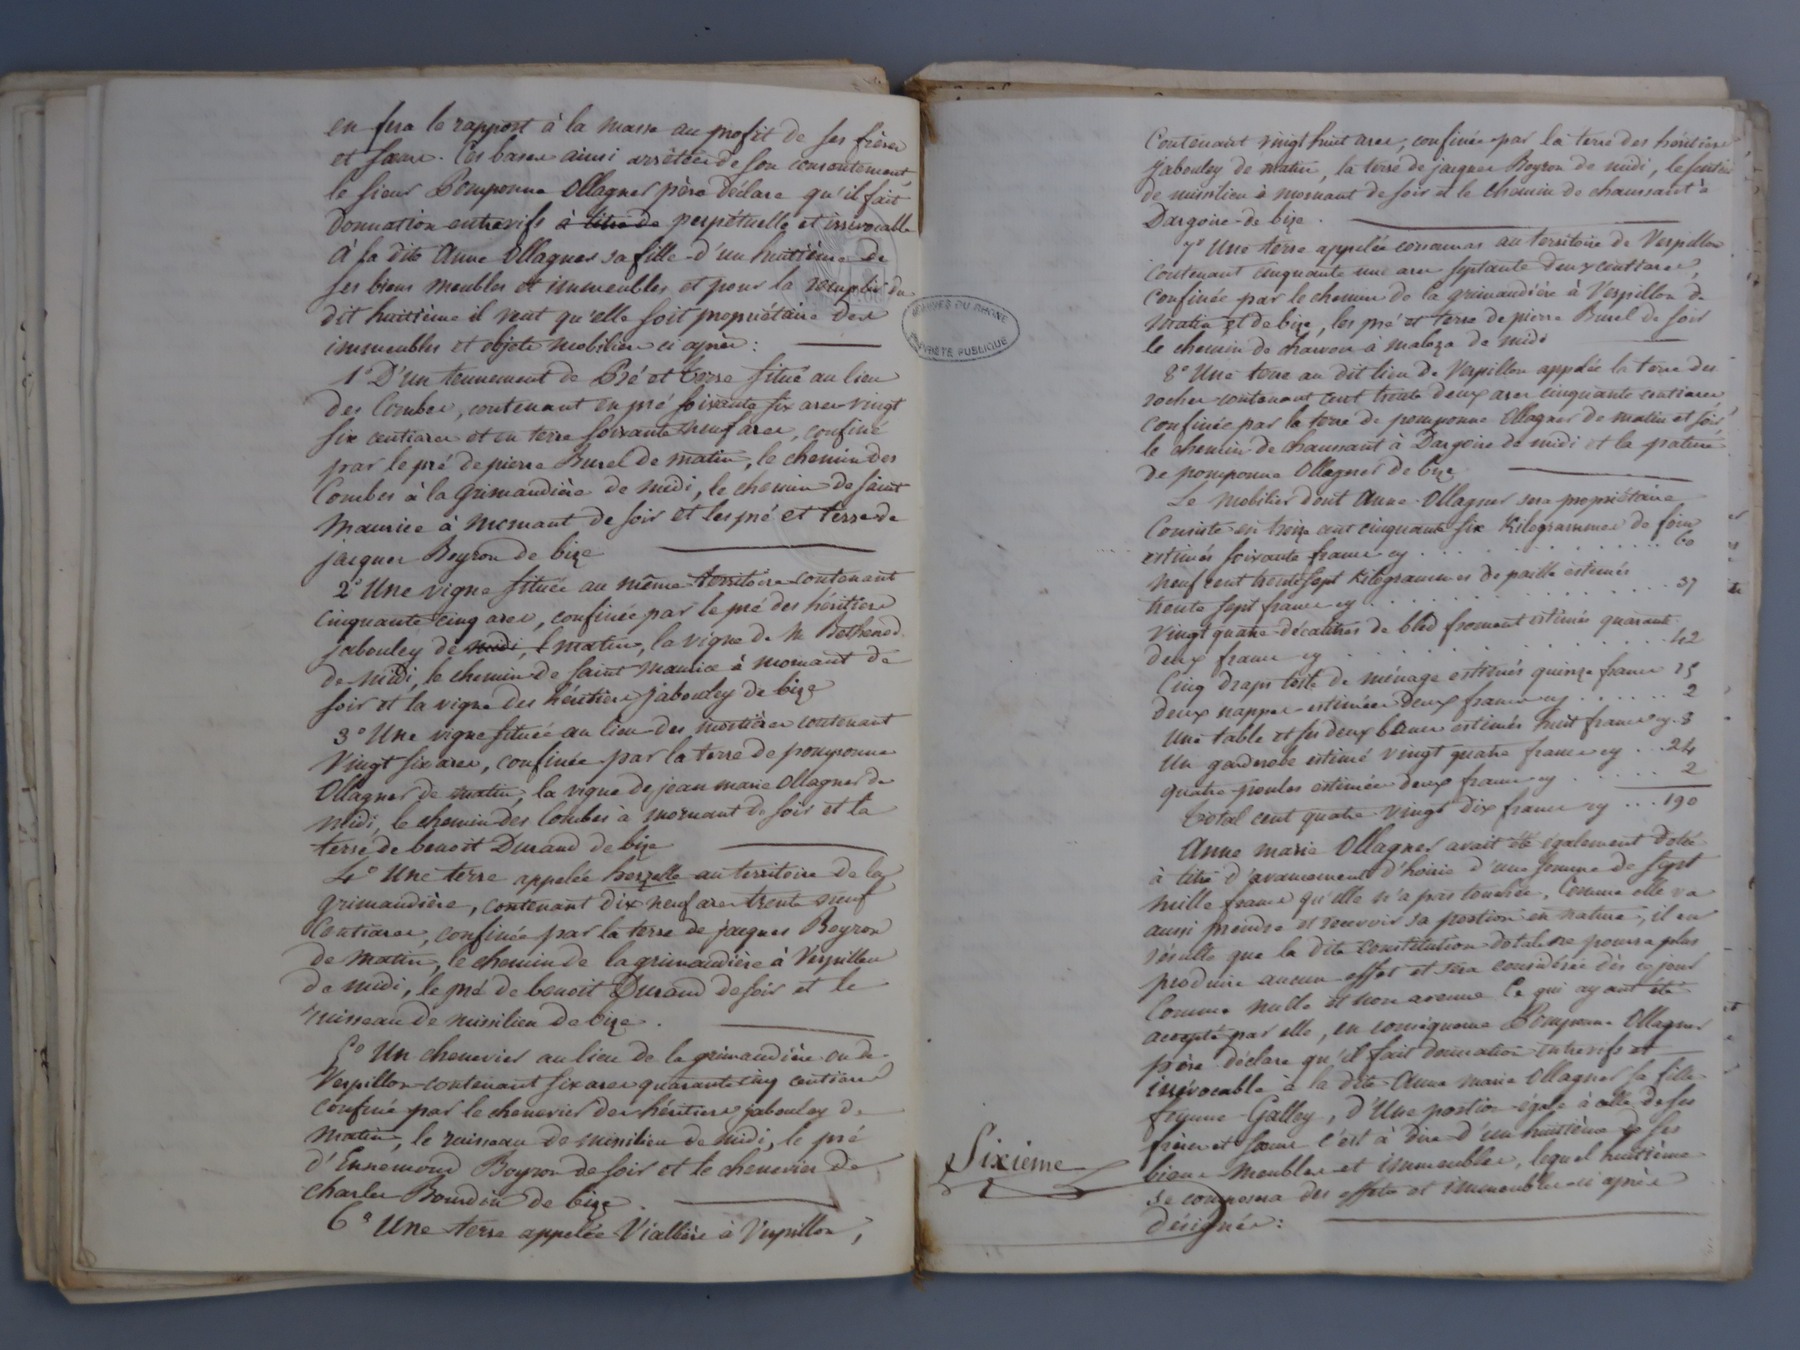 en fera le rapport à la masse au profit de ses frères
et sœur. Ces bases ainsi arrêtées de son consentement
le sieur Pomponne Ollagner père déclare qu'il fait
donnation entrevifs à titre de perpétuelle et irrévocable
à la dite Anne Ollagner sa fille d'un huitième de
ses biens meubles et immeubles et pour la remplir du
dit huitième il veut qu'elle soit propriétaire des
immeubles et objets mobiliers ci après :
1° D'un tennement de Pré et terre situé au lieu
des Combes, contenant en pré soixante six ares vingt
six centiares et en terre soixante neuf ares, confiné
par le pré de pierre Burel de matin, le chemin des
Combes à la grimaudière de midi, le chemin de saint
Maurice à mornant de soir et les pré et terre de
jacques Boyron de bize
2° Une vigne située au même territoire contenant
cinquante cinq ares, confinée par le pré des héritiers
jabouley de midi, matin, la vigne de M Bethenod
de midi, le chemin de saint maurice à mornant de
soir et la vigne des héritiers jabouley de bize
3° Une vigne située au lieu des contenant
vingt six ares, confinée par la terre de pomponne
Ollagner de matin, la vigne de jean marie Ollagner de
midi, le chemin des Combes à mornant de soir et la
terre de benoit Durand de bize
4° Une terre appelée au territoire de la
grimaudière, contenant dix neuf ares trente neuf
Centiares, confinée par la terre de jacques Boyron
de matin, le chemin de la grimaudière à Verpillon
de midi, le pré de benoit Durand de soir et le
ruisseau de missilieu de bize.
5° Un chenevier au lieu de la grimaudière ou de
Verpillon contenant six ares quarante cinq centiares
confiné par le chenevier des héritiers jabouley de
matin, le ruisseau de missilieu de midi, le pré
d'Ennemond Boyron de soir et le chenevier de
charles Bourdin de bize.
6° Une terre appelée à Verpillon,
ARCHIVES DU RHONE
PROPRIÉTÉ PUBLIQUE
Contenant vingt huit ares, confinée par la terre des héritiers
jabouley de matin, la terre de jacques Boyron de midi, le sentier
de missilieu à mornant de soir et le chemin de chaussant à
Dargoire de bize.
7° Une terre appelée au territoire de Verpillon
contenant cinquante une ares septante deux centiares,
confinée par le chemin de la grimaudière à Verpillon de
matin et de bize, les pré et terre de pierre Burel de soir
le chemin de à de midi
8° Une terre au dit lieu de Verpillon appelée la terre des
rocher contenant cent trente deux ares cinquante centiares
confinée par la terre de pomponne Ollagner de matin et soir,
le chemin de chaussant à Dargoire de midi et la pature
de pomponne Ollagner de bize
Le mobilier dont Anne Ollagner sera propriétaire
Consiste en treize cent cinquante six Kilogrammes de foin
estimés soixante francs cy . . . 60
Neuf cent trente sept Kilogrammes de paille estimés
trente sept francs cy . . . 37
Vingt quatre décalitres de bled froment estimés quarante
deux francs cy . . . 42
Cinq draps toile de ménage estimés quinze francs 15
deux nappes estimées deux francs cy . . . 2
Une table et ses deux bancs estimés huit francs cy. 8
Un garderobe estimé vingt quatre francs cy . . 24
quatre poules estimées deux francs cy . . . 2
Total cent quatre vingt dix francs cy . . . 190
Anne marie Ollagner avait été également dotée
à titre d'avancement d'hoirie d'une somme de sept
mille francs qu'elle n'a pas touchée. Comme elle va
aussi prendre et recevoir sa portion en nature, il en
résulte que la dite constitution dotale ne pourra plus
produire aucun effet et sera considérée dès ce jour
Comme nulle et non avenue Ce qui ayant été
accepté par elle, en conséquence Pomponne Ollagner
père déclare qu'il fait donnation entrevifs et
irrévocable à la dite Anne marie Ollagner sa fille
femme Galley, d'Une portion égale à celle de ses
frères et sœur c'est à dire d'un huitième de ses
biens Meubles et immeubles, lequel huitième
se composera des effets et immeubles ci après
désignés :
Sixieme